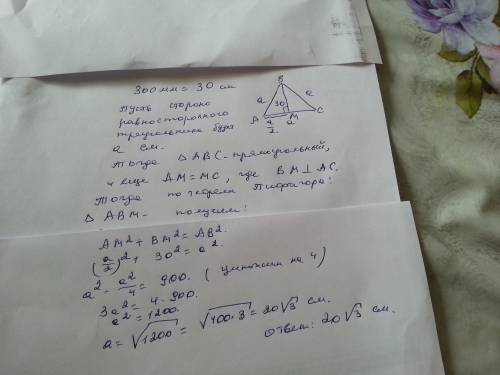 300 мм = 30 см
Пусть сторона
равностороннего
треугольника будет
a см.
Тогда △ABC - прямоугольный,
и еще AM = MC, где BM ⊥ AC.
Тогда по теореме Пифагора:
△ABM - получаем:
B
a
a
30
A
M
C
a/2
a
AM² + BM² = AB².
(a/2)² + 30² = a².
a² - a²/4 = 900. (умножаем на 4)
3a² = 4 · 900.
a² = 1200.
a = √1200 = √400·3 = 20√3 см.
Ответ: 20√3 см.